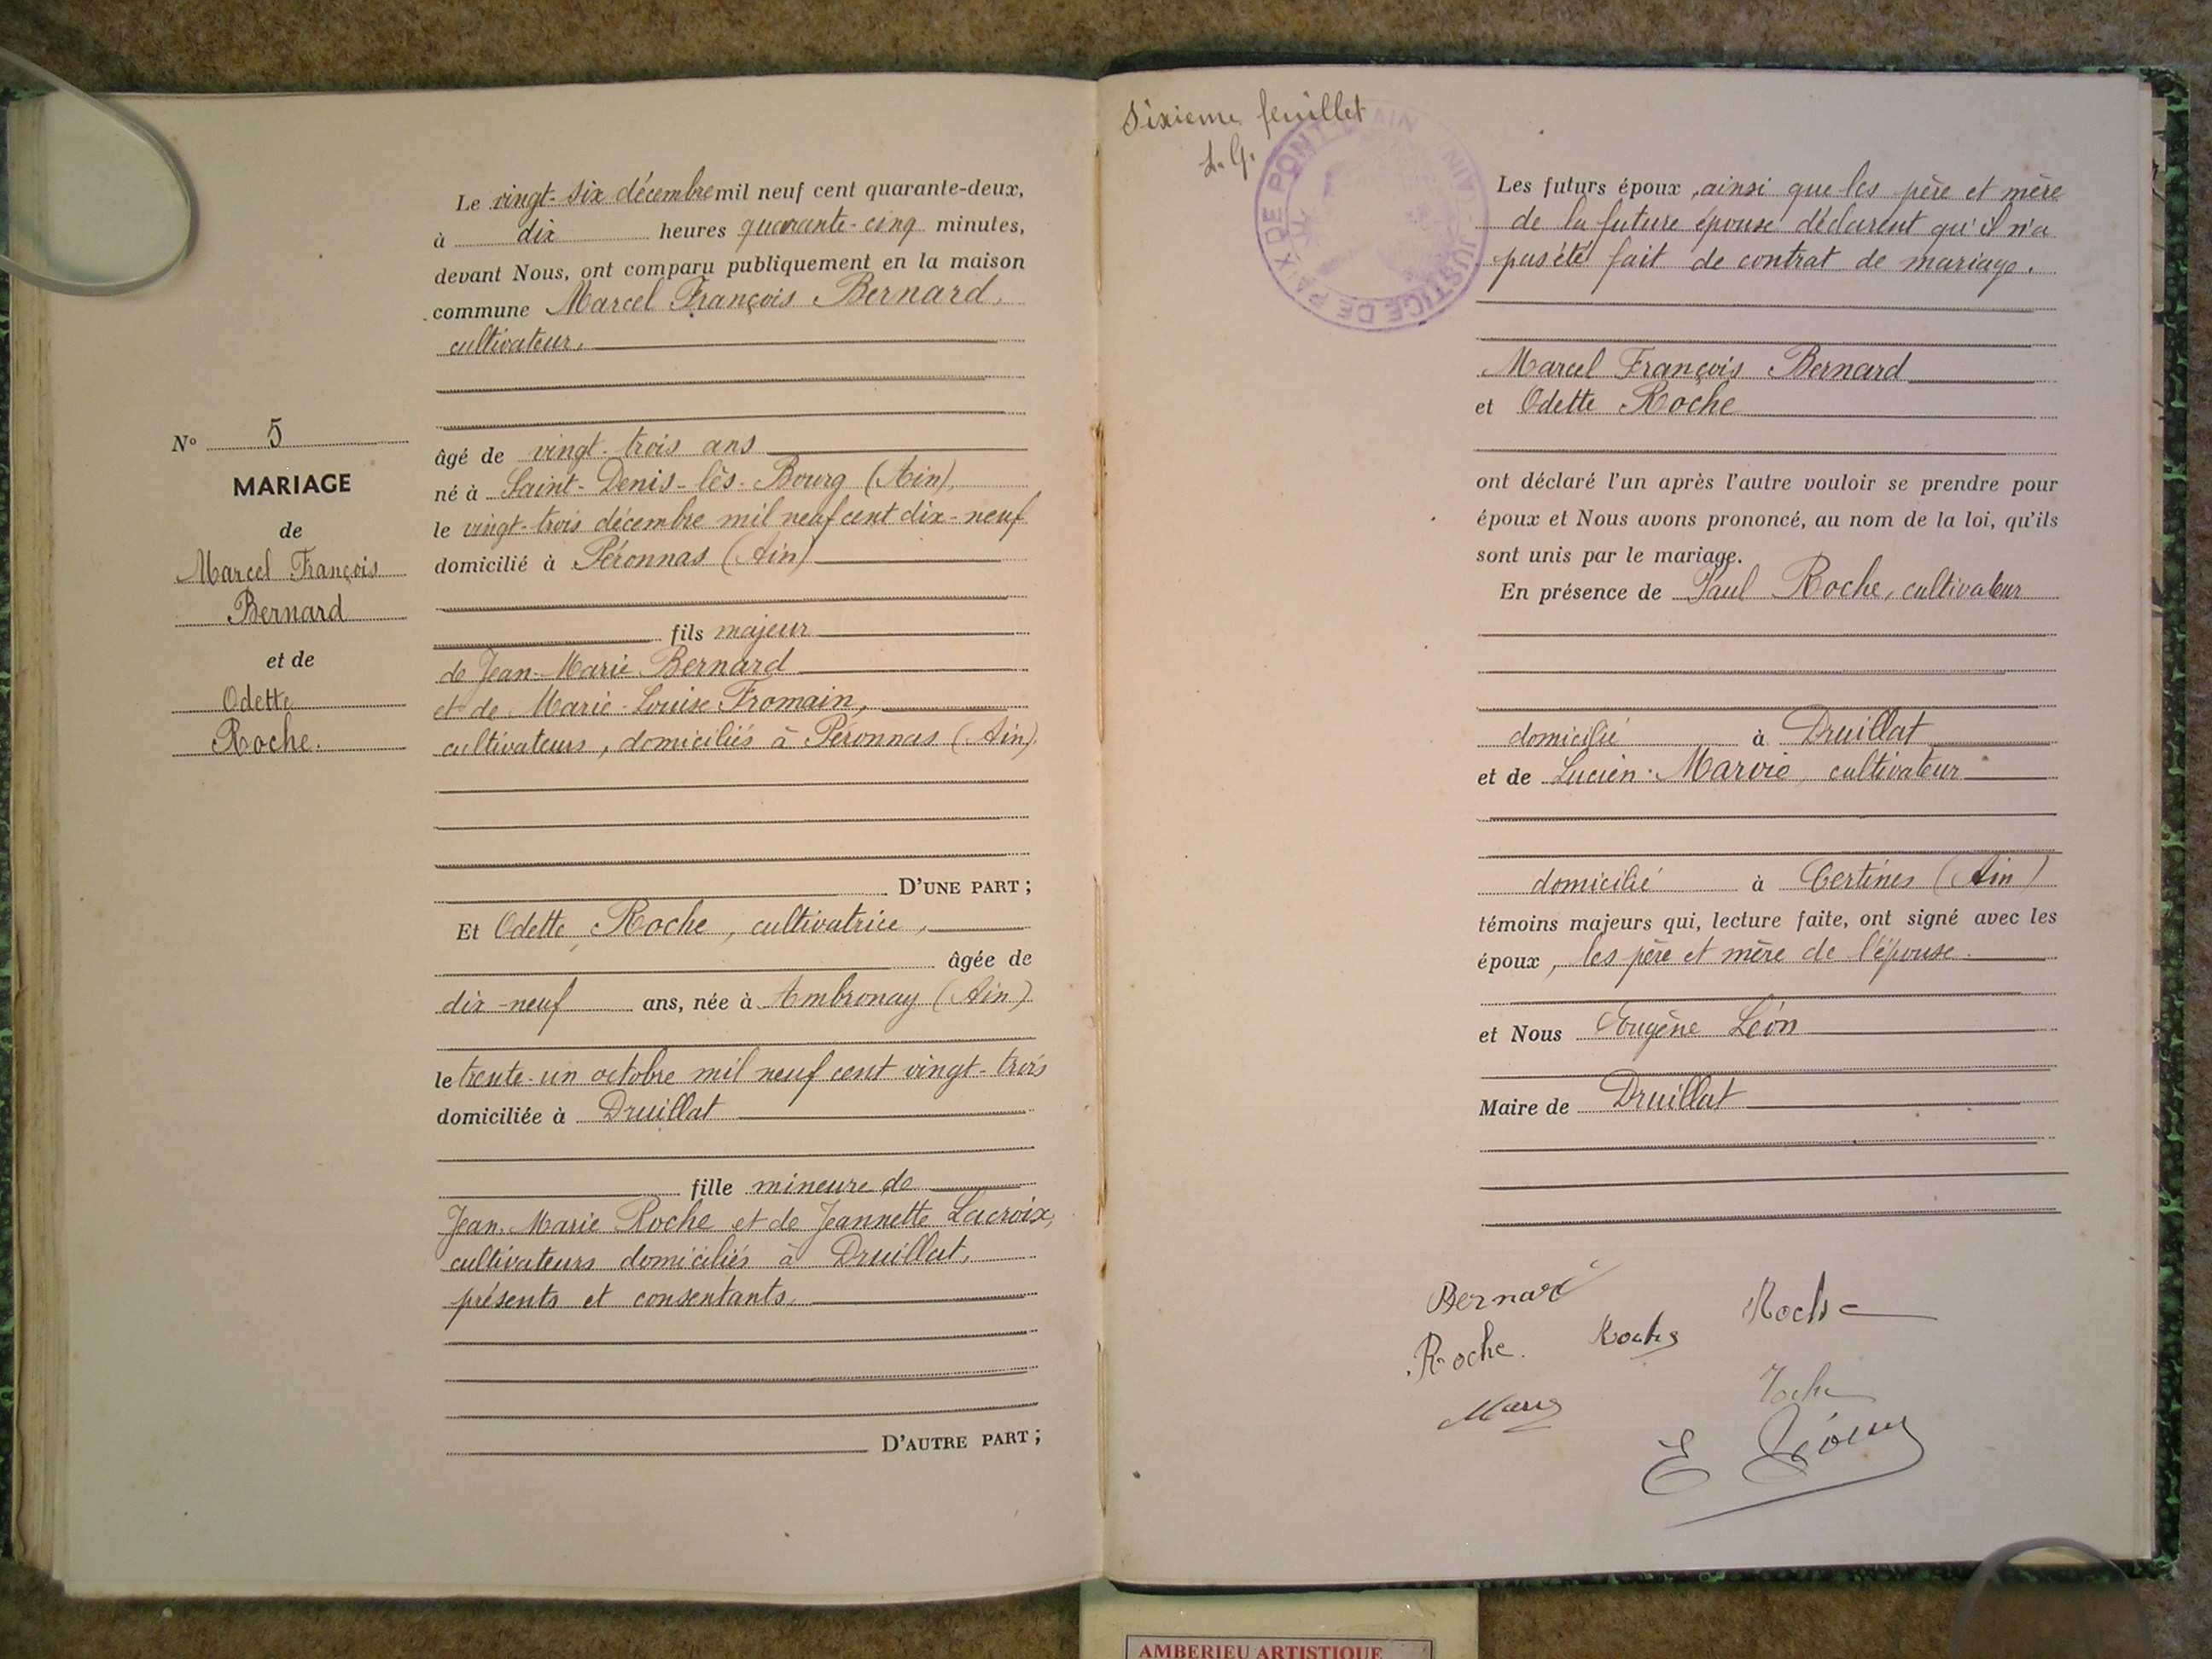 Le vingt-six décembre mil neuf cent quarante-deux,
à dix heures quarante-cinq minutes,
devant Nous, ont comparu publiquement en la maison
commune Marcel François Bernard,
cultivateur,
âgé de vingt-trois ans
né à Saint-Denis-lès-Bourg (Ain),
le vingt-trois décembre mil neuf cent dix-neuf
domicilié à Péronnas (Ain)
fils majeur
de Jean-Marie Bernard
et de Marie-Louise Fromain,
cultivateurs, domiciliés à Péronnas (Ain).
D'UNE PART ;
Et Odette Roche, cultivatrice,
âgée de
dix-neuf ans, née à Ambronay (Ain)
le trente-un octobre mil neuf cent vingt-trois
domiciliée à Druillat
fille mineure de
Jean-Marie Roche et de Jeannette Lacroix,
cultivateurs domiciliés à Druillat,
présents et consentants,
D'AUTRE PART ;
N° 5
MARIAGE
de
Marcel François
Bernard
et de
Odette
Roche.
Sixième feuillet
L. G.
JUSTICE DE PAIX DE PONT-D'AIN - AIN
Les futurs époux, ainsi que les père et mère
de la future épouse déclarent qu'il n'a
pas été fait de contrat de mariage.
Marcel François Bernard
et Odette Roche
ont déclaré l'un après l'autre vouloir se prendre pour
époux et Nous avons prononcé, au nom de la loi, qu'ils
sont unis par le mariage.
En présence de Paul Roche, cultivateur
domicilié à Druillat
et de Lucien Marvie, cultivateur
domicilié à Certines (Ain)
témoins majeurs qui, lecture faite, ont signé avec les
époux, les père et mère de l'épouse.
et Nous Eugène Léon
Maire de Druillat
Bernard
Roche
Roche. Roche
E Léon
AMBERIEU ARTISTIQUE